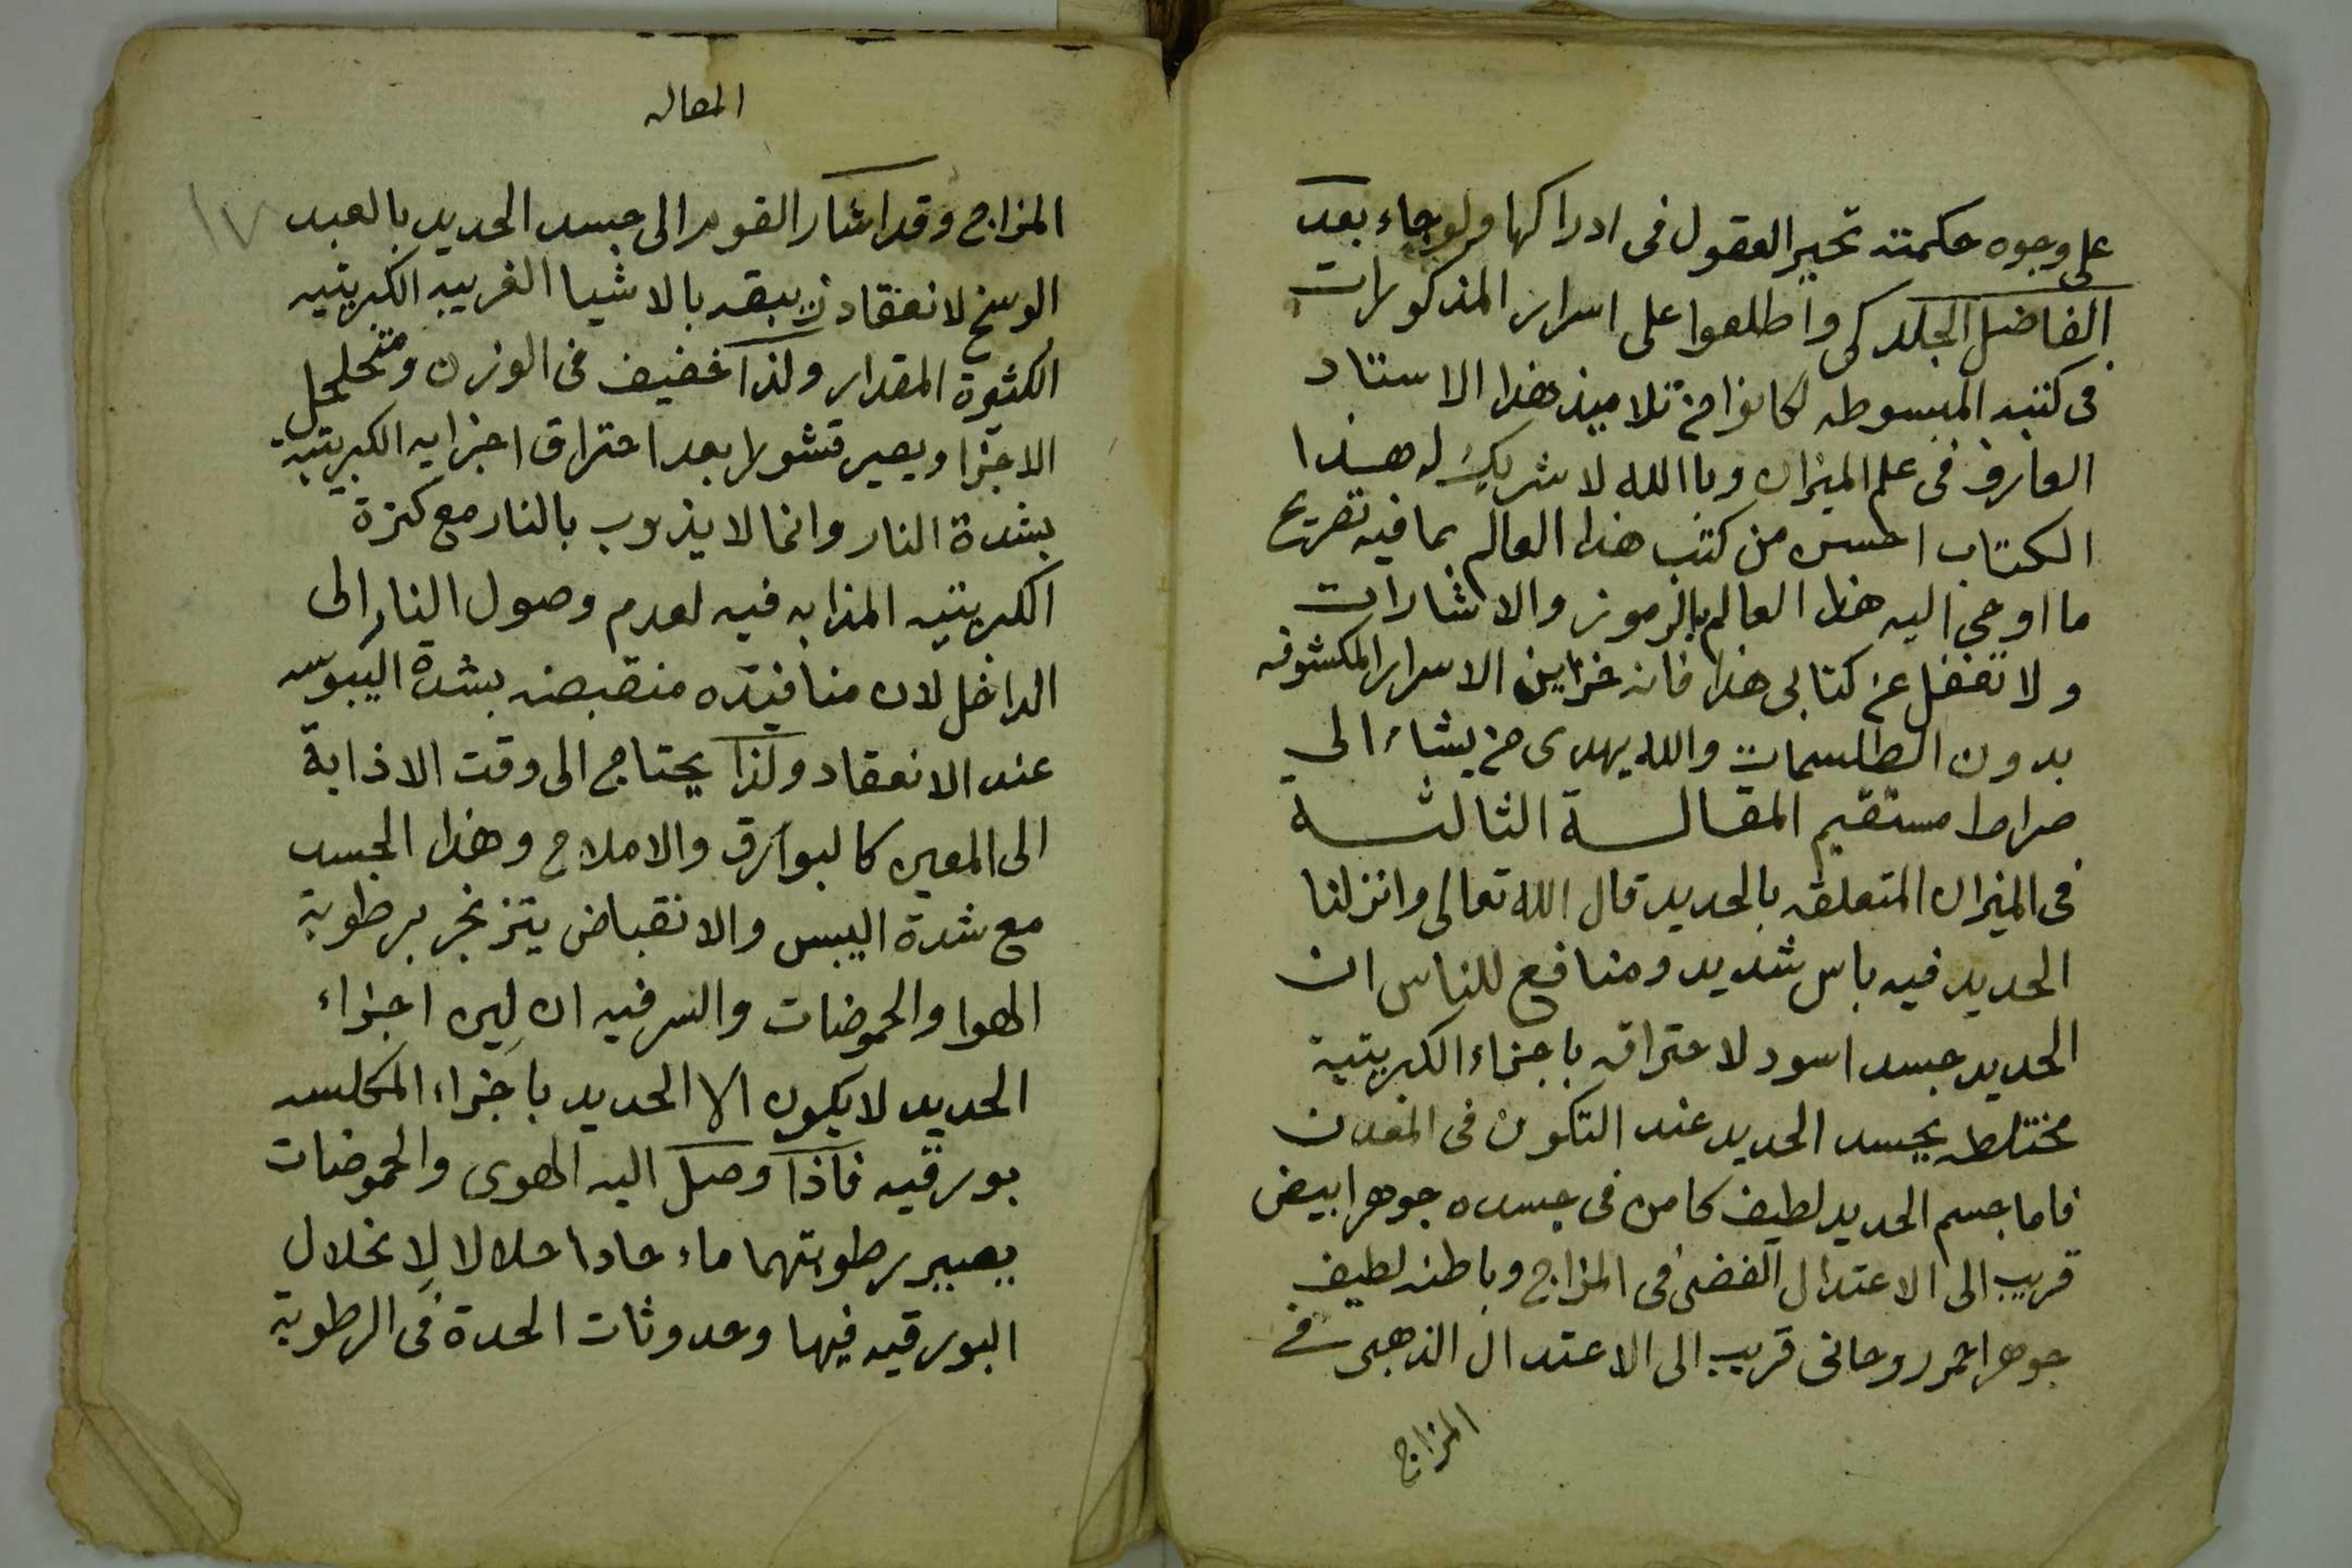 على وجوه حكمته تحير العقول فى ادراكها ولو جاء بعد
الفاضل الجلدكى واطلعوا على اسرار المذكورات
فى كتبه المبسوطه لكانوا من تلاميذ هذا الاستاد
العارف فى علم الميزان وبا الله لا شريك له هذا
الكتاب احسن من كتب هذا العالم بما فيه تصريح
ما اوحى اليه هذا العالم بالرموز والاشارات
ولا تغفل عن كتابى هذا فانه خزاين الاسرار المكشوفه
بدون الطلسمات والله يهدى من يشاء الى
صراط مستقيم المقالة الثالثة
فى الميزان المتعلقه بالحديد قال الله تعالى وانزلنا
الحديد فيه باس شديد ومنافع للناس ان
الحديد جسد اسود لاحتراقه باجزاء الكبريتية
مختلطه بجسد الحديد عند التكون فى المعدن
فاما جسم الحديد لطيف كامن فى جسده جوهر ابيض
قريب الى الاعتدال الفضى فى المزاج وباطنه لطيف
جوهر احمر روحانى قريب الى الاعتدال الذهبى فى
المزاج
المقاله
١٧
المزاج وقد اشار القوم الى جسد الحديد بالعبد
الوسخ لانعقاد زيبقه بالاشيا الغريبه الكبريتيه
الكثيرة المقدار ولذا خفيف فى الوزن ومتخلخل
الاجزا ويصير قشورا بعد احتراق اجزايه الكبريتية
بشدة النار وانما لا يذوب بالنار مع كثرة
الكبريتيه المذابه فيه لعدم وصول النار الى
الداخل لان منافيذه منقبضه بشدة اليبوسه
عند الانعقاد ولذا يحتاج الى وقت الاذابة
الى المعين كالبوارق والاملاح وهذا الجسد
مع شدة اليبس والانقباض يتزنجر برطوبة
الهوا والحموضات والسر فيه ان لين اجزاء
الحديد لا يكون الا الحديد باجزاء المكلسه
بورقيه فاذا وصل اليه الهوى والحموضات
يصير رطوبتهما ماء حادا حلالا لانحلال
البورقيه فيها وحدوثات الحدة فى الرطوبة